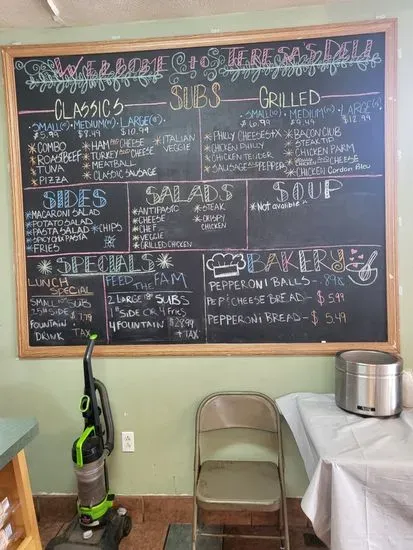 Welcome to Teresa's Deli
SUBS
CLASSICS
SMALL MEDIUM LARGE
$5.99 $7.49 $10.99
* COMBO
* ROAST BEEF
* TUNA
* PIZZA
* HAM AND CHEESE
* TURKEY AND CHEESE
* MEATBALL
* CLASSIC SAUSAGE
* ITALIAN
VEGGIE
GRILLED
SMALL MEDIUM LARGE
$6.99 $9.49 $12.99
* PHILLY CHEESESTK
* CHICKEN PHILLY
* CHICKEN TENDER
* SAUSAGE AND PEPPER
* BACON CLUB
* STEAK TIP
* CHICKEN PARM
CHEESE
* CHICKEN CORDON BLEU
SIDES
* MACARONI SALAD
* POTATO SALAD
* PASTA SALAD
* SPICY CHX PASTA
* FRIES
* CHIPS
SALADS
* ANTIPASTO
* CHEESE
* CHEF
* VEGGIE
* GRILLED CHICKEN
* STEAK
* CRISPY
CHICKEN
SOUP
* Not avaible *
SPECIALS
LUNCH
SPECIAL
SMALL SUBS
SIDE $7.79
FOUNTAIN +
DRINK TAX
FEED THE FAM
2 LARGE SUBS
1 SIDE OR 4 FRIES
4 FOUNTAIN $28.99
+ TAX
BAKERY
PEPPERONI BALLS - .89¢
PEP & CHEESE BREAD - $5.99
PEPPERONI BREAD - $5.49